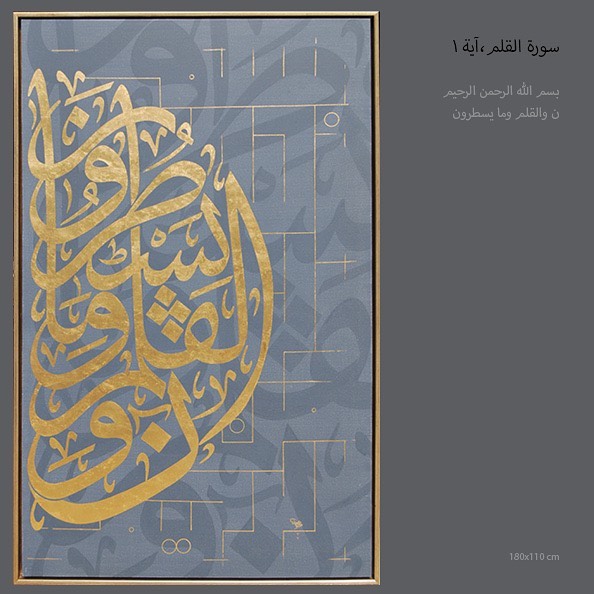 سورة القلم،آية ١
بسم الله الرحمن الرحيم
ن والقلم وما يسطرون
ن والقلم وما يسطرون
180x110 cm